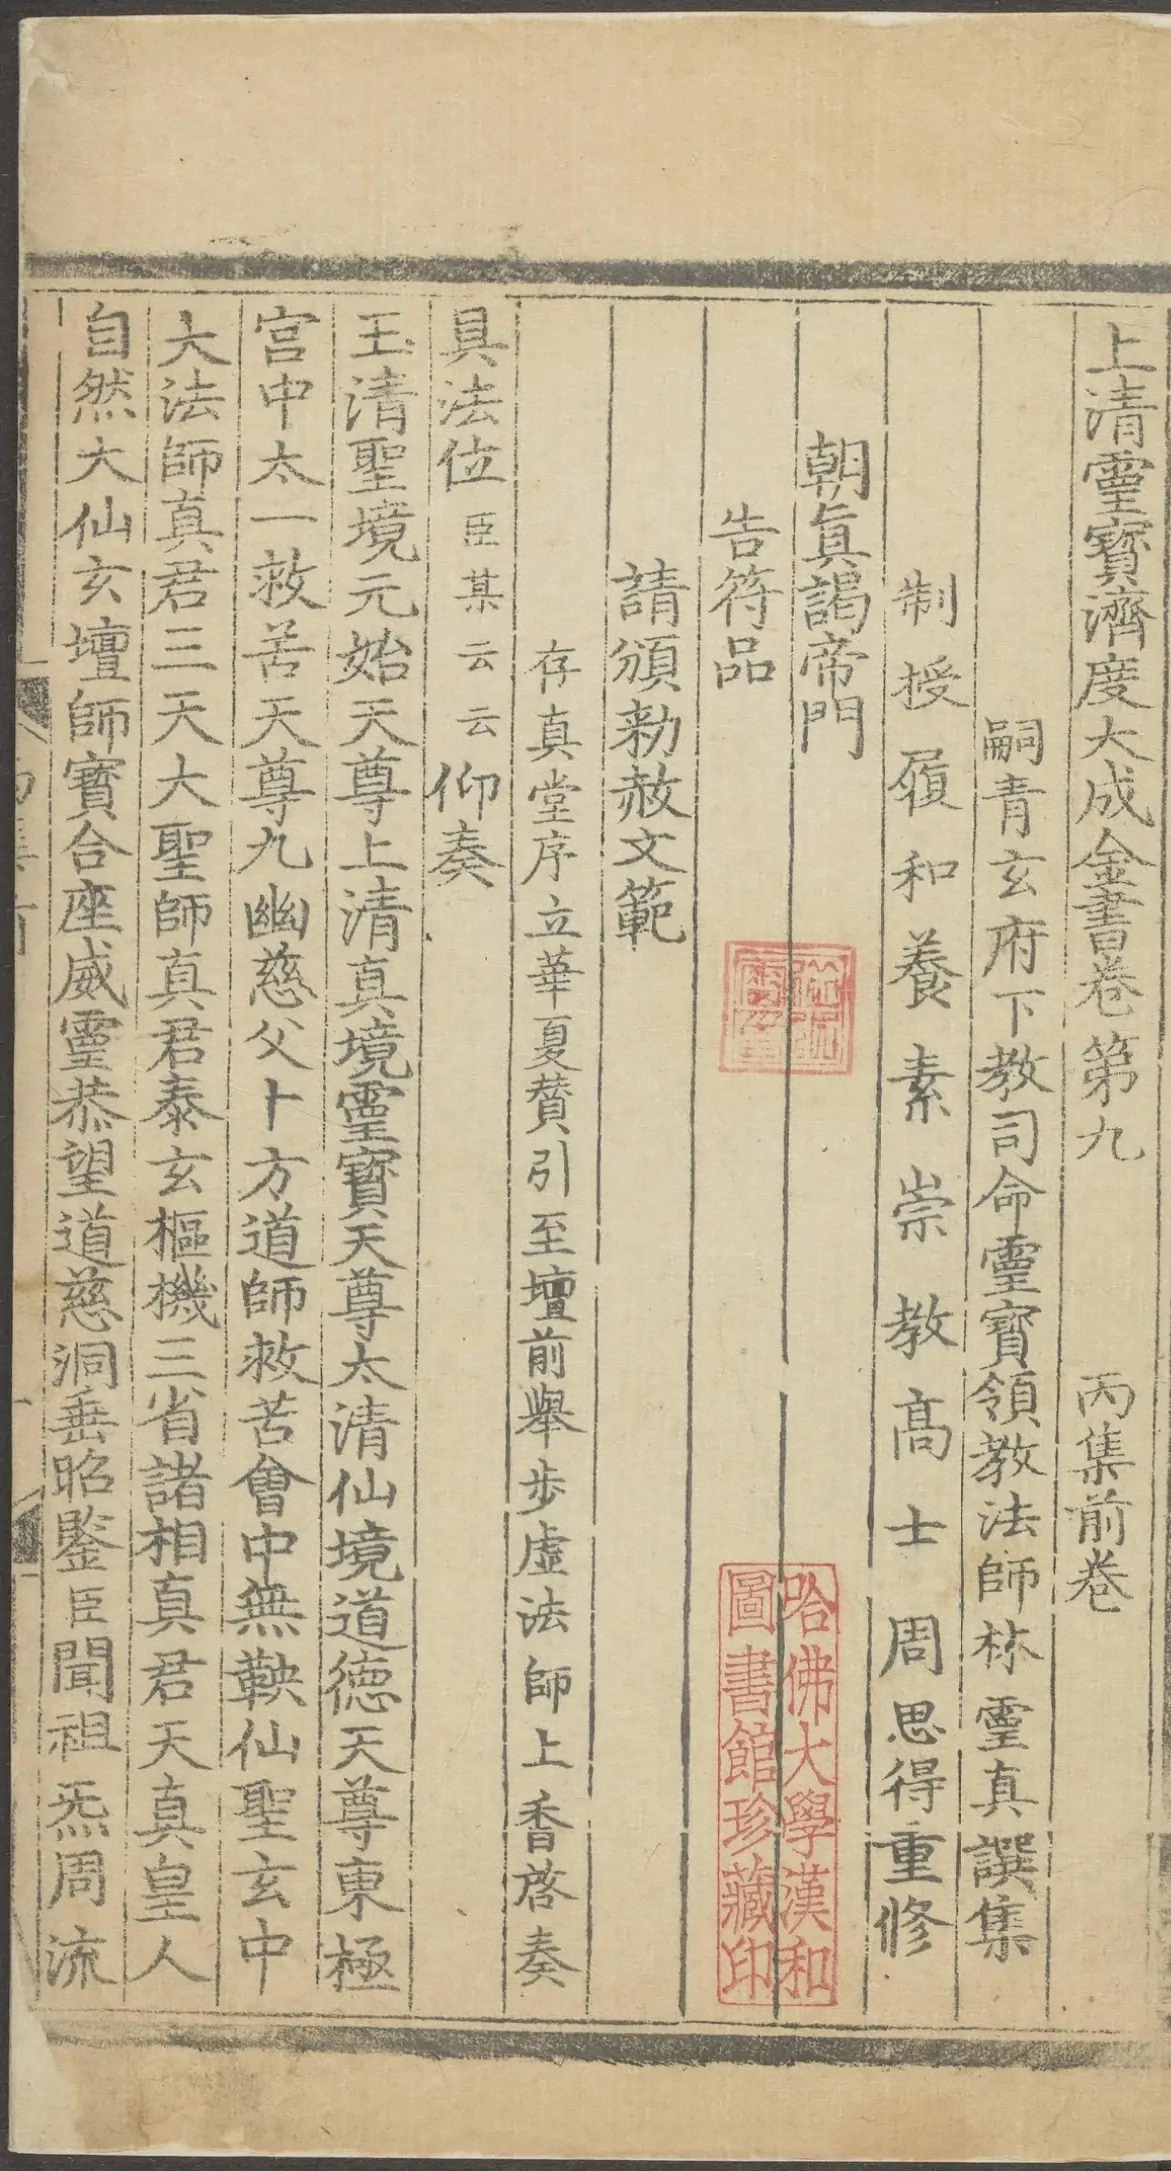 上清靈寶濟度大成金書卷第九　丙集前卷
嗣青玄府下教司命靈寶領教法師林靈真譔集
制授履和養素崇教高士周思得重修
朝眞謁帝門
告符品
請頒勑赦文範
存真堂序立華夏贊引至壇前舉步虛法師上香啓奏
具法位臣某云云仰奏
玉清聖境元始天尊上清真境靈寶天尊太清仙境道德天尊東極
宮中太一救苦天尊九幽慈父十方道師救苦會中無鞅仙聖玄中
大法師真君三天大聖師真君泰玄樞機三省諸相真君天真皇人
自然大仙玄壇師寶合座威靈恭望道慈洞垂昭鑒臣聞祖炁周流
哈佛大學漢和
圖書館珍藏印